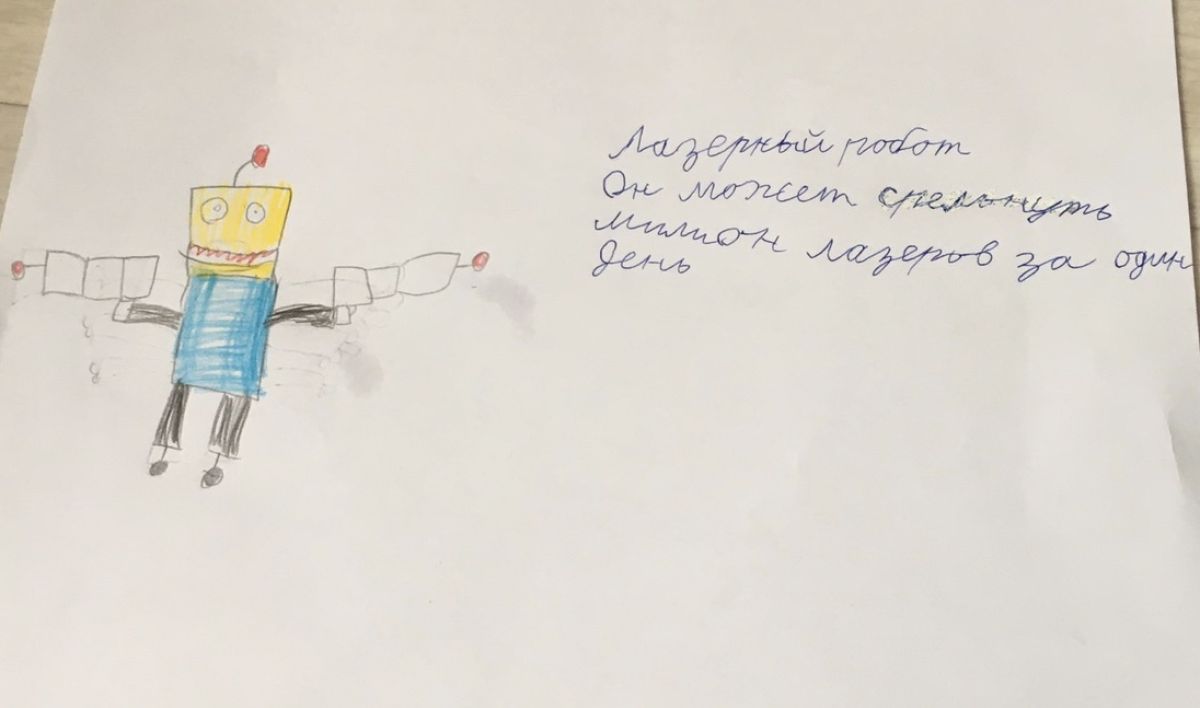 Лазерный робот
Он может стельнуть
милион лазеров за один
день